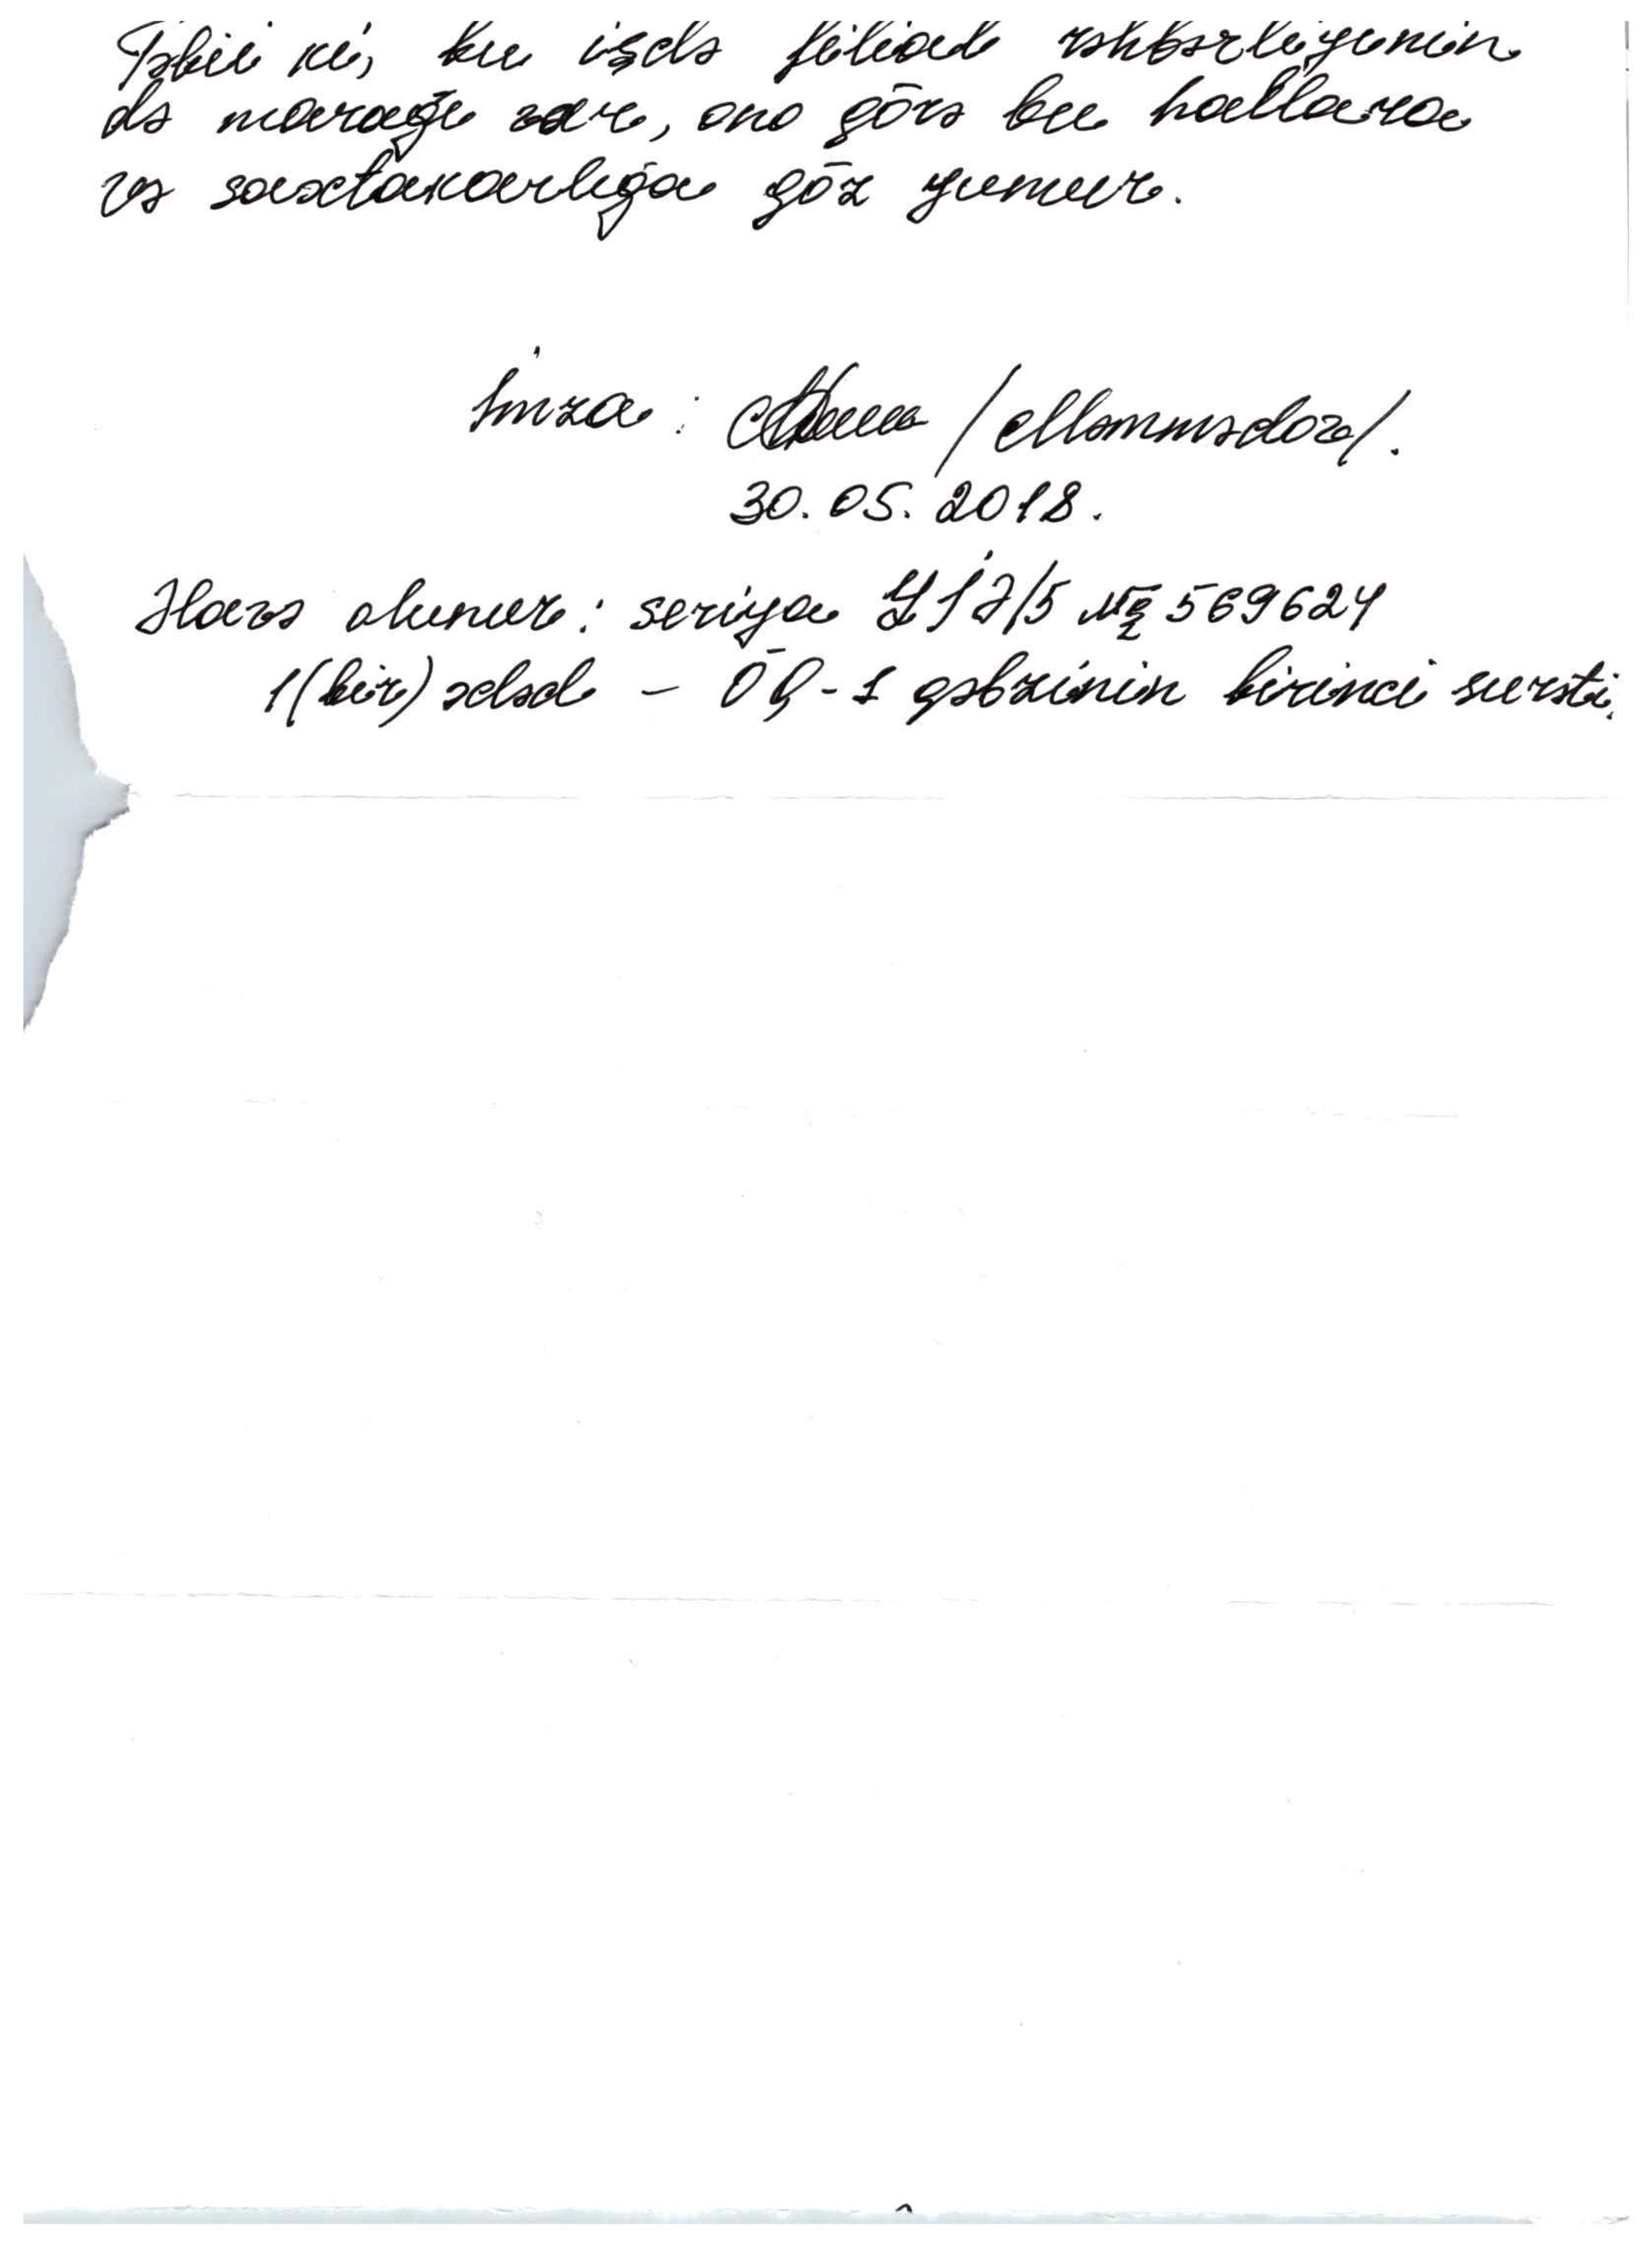 Təbii ki, bu işdə filial rəhbərliyinin
də marağı var, ona görə bu hallara
və saxtakarlığa göz yumur.
İmza: /Məmmədov/.
30.05.2018.
Əlavə olunur: seriya YİƏ/5 № 569624
1(bir) ədəd – ÖQ-1 qəbzinin birinci surəti.